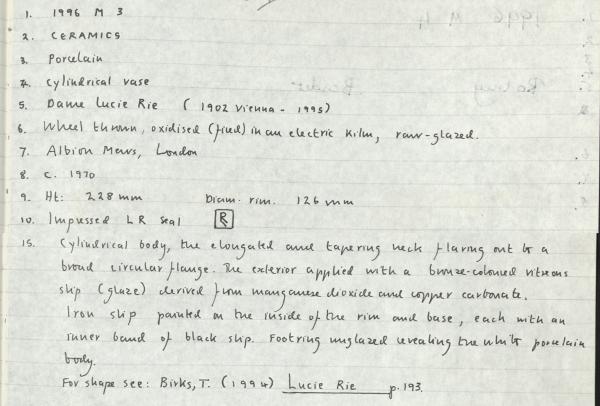 1. 1996 M 3
2. CERAMICS
3. Porcelain
4. Cylindrical vase
5. Dame Lucie Rie (1902 Vienna - 1995)
6. Wheel thrown, oxidised (fired) in an electric kiln, raw-glazed.
7. Albion Mews, London
8. c. 1970
9. Ht: 228 mm Diam. rim. 126 mm
10. Impressed LR seal LR
15. Cylindrical body, the elongated and tapering neck flaring out to a
broad circular flange. The exterior applied with a bronze-coloured vitreous
slip (glaze) derived from manganese dioxide and copper carbonate.
Iron slip painted on the inside of the rim and base, each with an
inner band of black slip. Footring unglazed revealing the white porcelain
body.
For shape see: Birks, T. (1994) Lucie Rie p. 193.